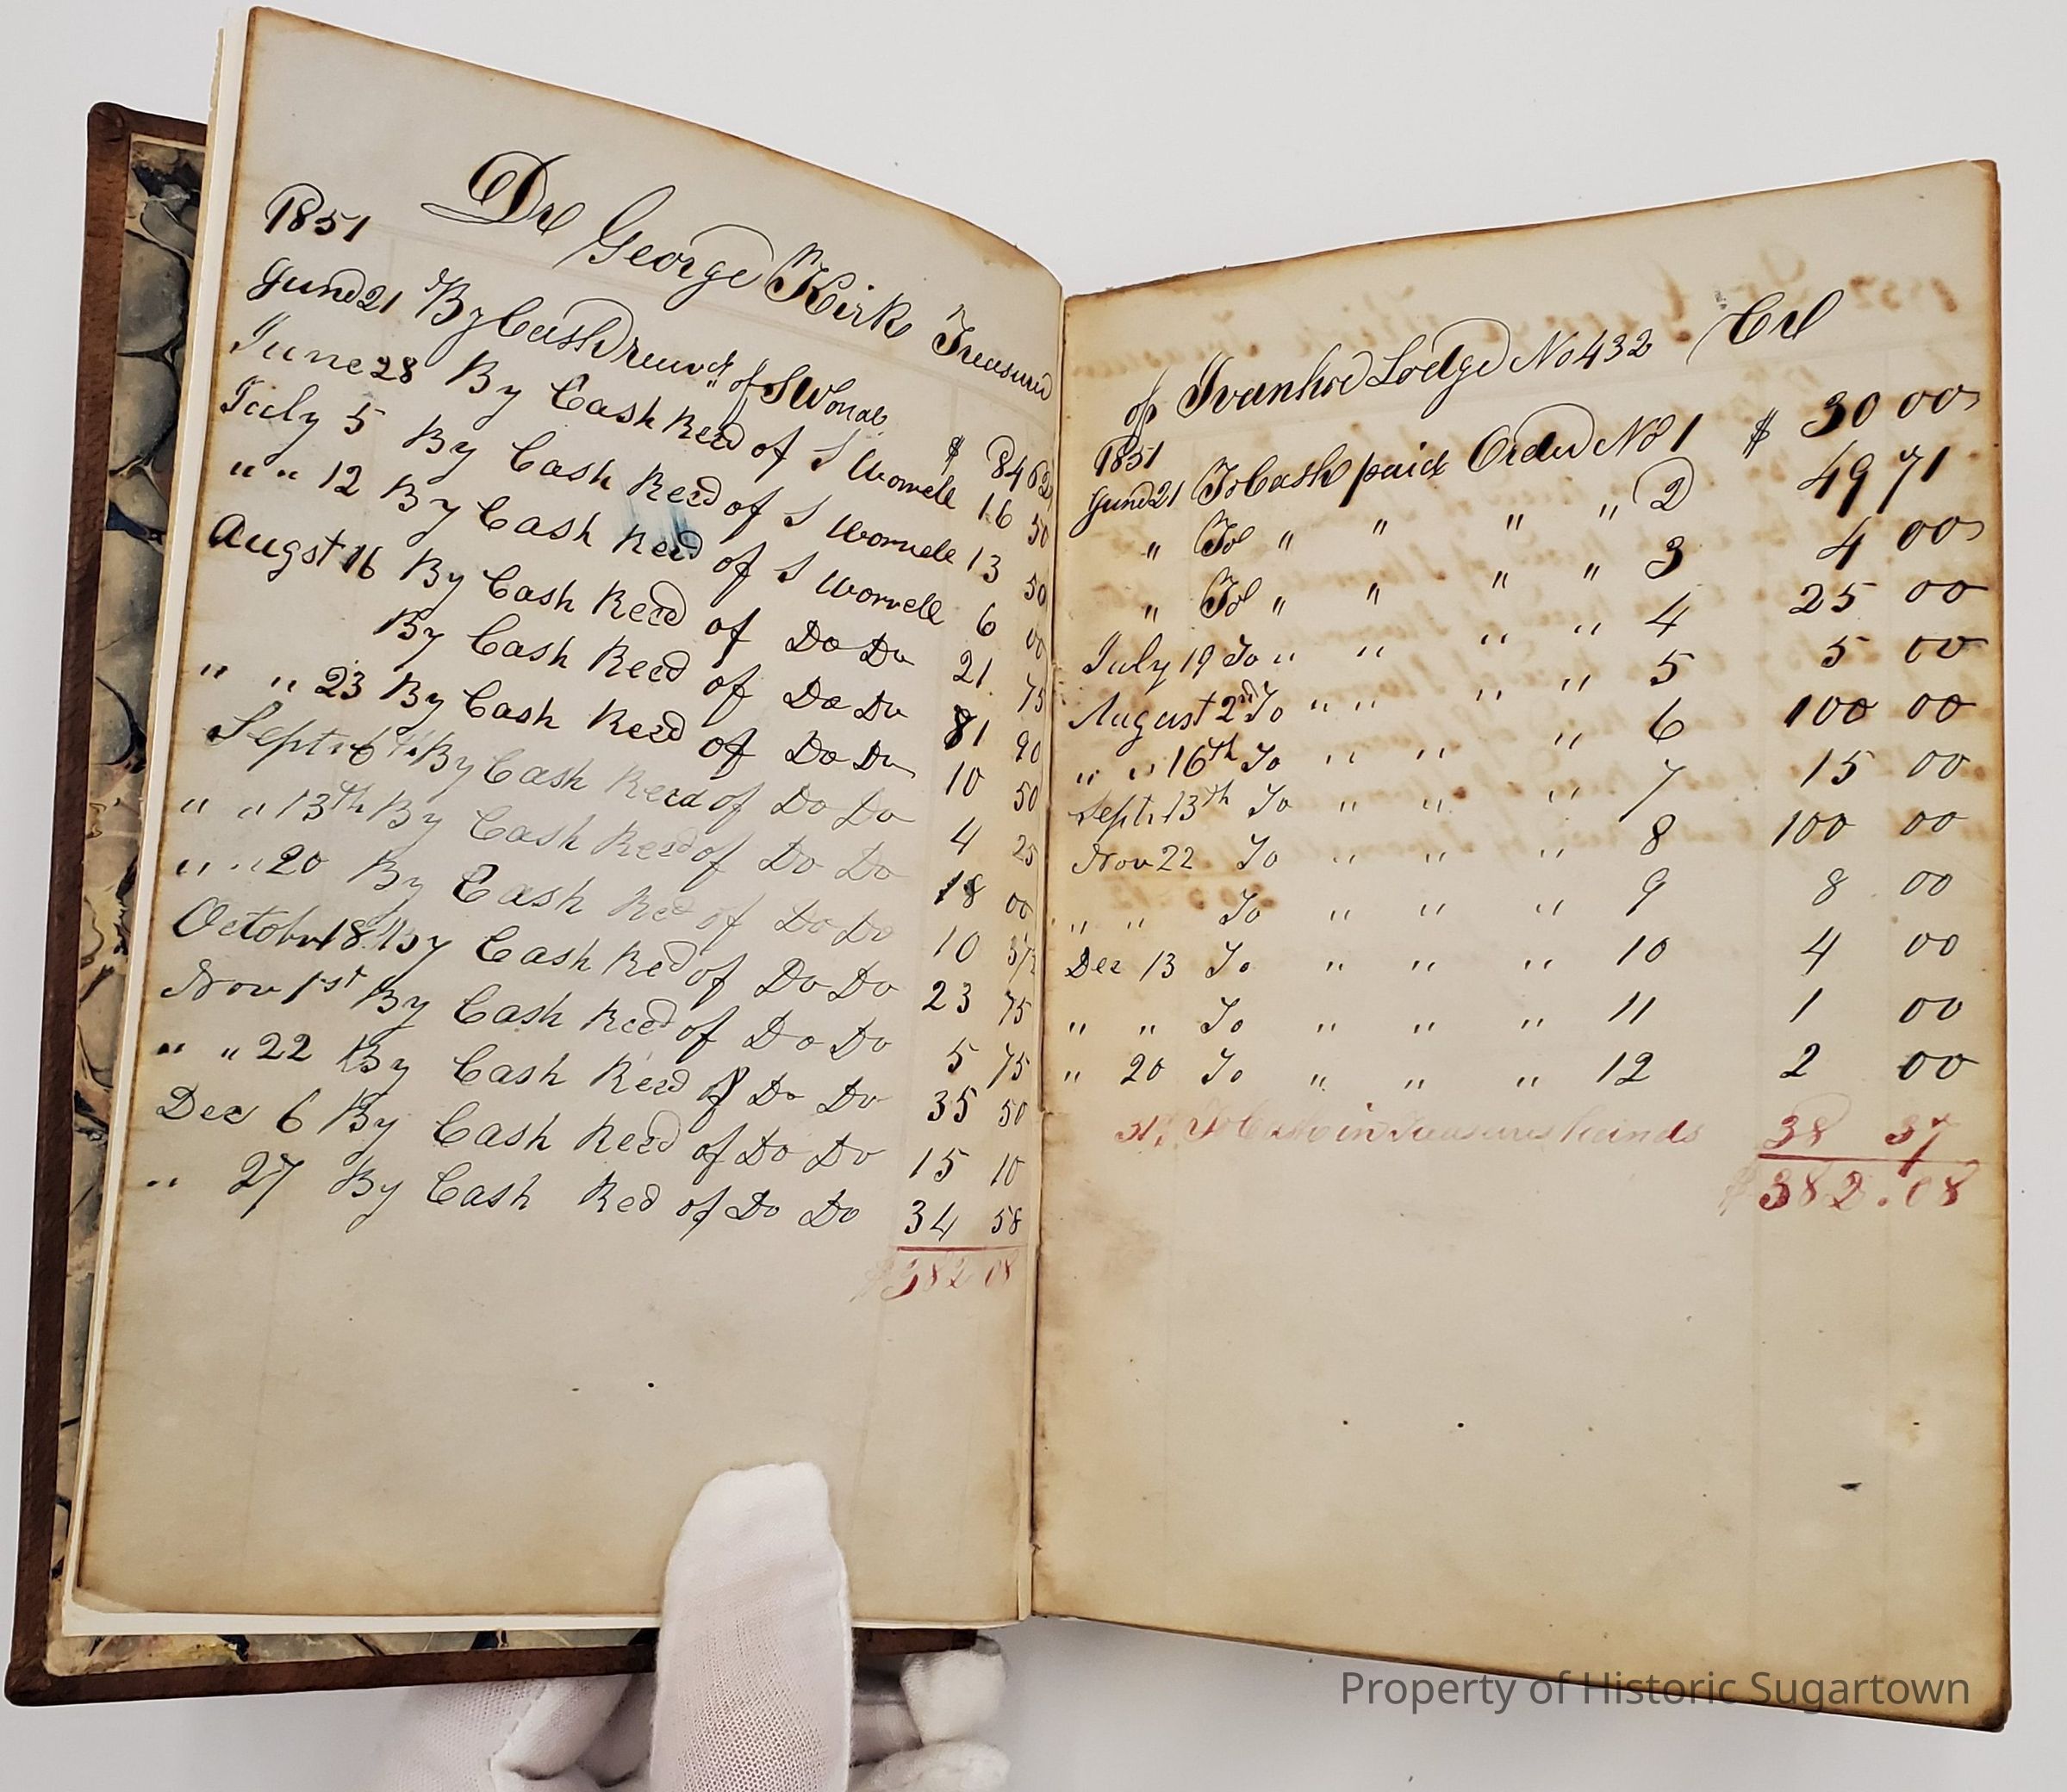 1851 Dr George Kirk Treasurer
June 21 By Cash of S Worrall $ 84 62½
June 28 By Cash Recd of S Worrell 16 50
July 5 By Cash Recd of S Worrell 13 50
" " 12 By Cash Recd of S Worrell 6 00
Augst 16 By Cash Recd of Do Do 21 75
By Cash Recd of Do Do 81 90
" " 23 By Cash Recd of Do Do 10 50
Septr 6th By Cash Recd of Do Do 4 25
" " 13th By Cash Recd of Do Do 18 00
" " 20 By Cash Recd of Do Do 10 37½
October 18 By Cash Recd of Do Do 23 75
Nov 1st By Cash Recd of Do Do 5 75
" " 22 By Cash Recd of Do Do 35 50
Dec 6 By Cash Recd of Do Do 15 10
" 27 By Cash Red of Do Do 34 58
$382 08
of Ivanhoe Lodge No 432 Cr
1851
June 21 To Cash paid Order No 1 $ 30 00
" To " " " " 2 49 71
" To " " " " 3 4 00
July 19 To " " " " 4 25 00
August 2nd To " " " " 5 5 00
" " 16th To " " " 6 100 00
Sept. 13th To " " " 7 15 00
Nov 22 To " " " 8 100 00
" " To " " " 9 8 00
Dec 13 To " " " 10 4 00
" " To " " " 11 1 00
" 20 To " " " 12 2 00
31 To Cash in Treasurers hands 38 37
$382.08
Property of Historic Sugartown